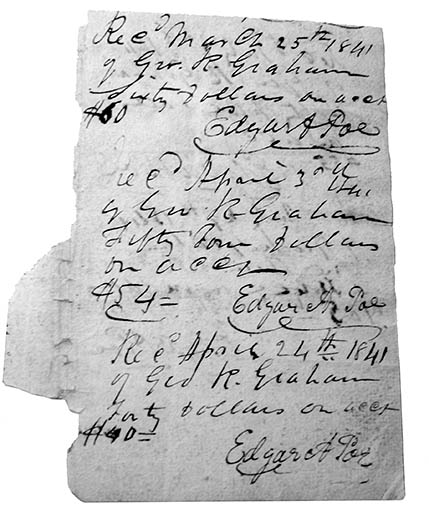 Rec^d March 25^th 1841
of Geo. R. Graham
Sixty Dollars on acct
$60
Edgar A Poe
Rec^d April 3^rd 1841
of Geo R Graham
Fifty Four Dollars
on acct
$54 =
Edgar A. Poe
Rec^d April 24^th 1841
of Geo R. Graham
Forty Dollars on acct
$40 =
Edgar A Poe